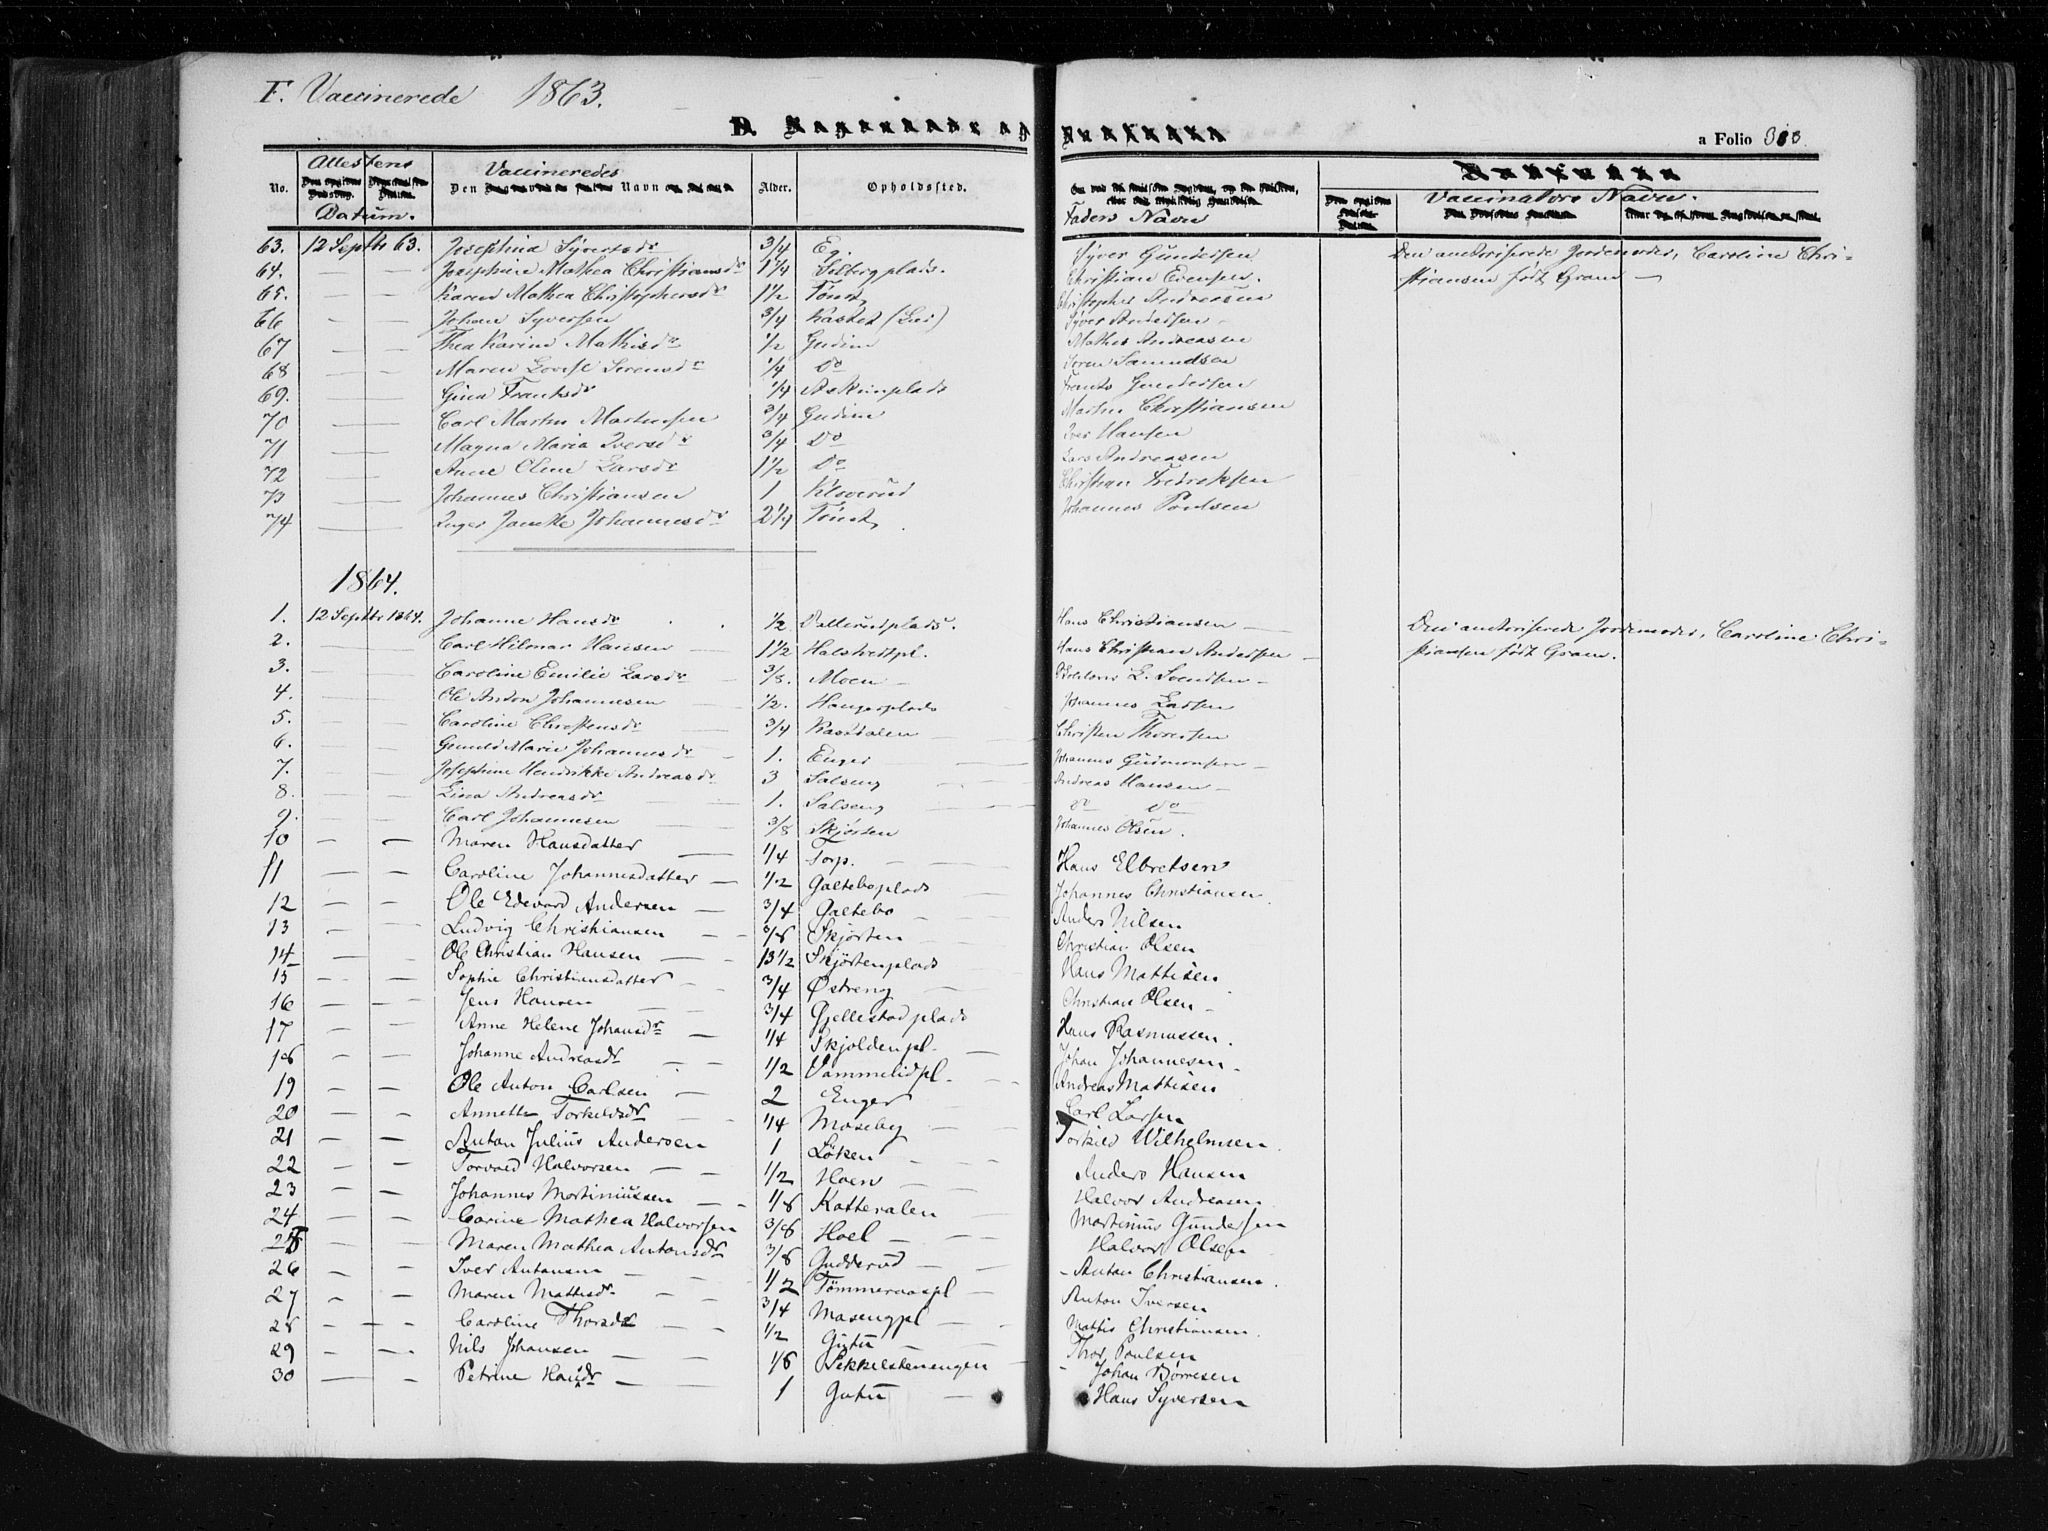 F. Vaccinerede 1863.
a Folio
Attestens Datum.
No. Den Vaccineredes Navn Alder. Opholdssted. Faders Navn Vaccinators Navn.
63. 12 Septbr 63. Josephina Syversdr 3/4 Eg. Syver Gundersen Den auctoriserede Jordemoder, Caroline Chri-
64. — — Josephine Mathea Christiansdr 1 1/4 Christian Evensen. stiansen født Gram —
65. — — Karen Mathea Christophersdr 1 1/2 Christopher Andreasen
66 — — Johan Syversen 3/4 Kastet Syver Andersen
67 — — Thea Karine Mathisdr 1/2 Gudim Mathis Andreasen
68 — — Maren Lovise Sorensdr 1/4 Do Soren Samuelsen
69. — — Gina Frantsdr 1/4 Askimplads Frants Gundersen
70 — — Carl Martin Martinsen 3/4 Gudim Martin Christiansen
71 — — Magna Maria Iversdr 3/4 Do Iver Hansen
72 — — Anne Oline Larsdr 1 1/2 Do Lars Andreasen
73 — — Johannes Christiansen 1 Kloverud Christian Fredriksen
74 — — Inger Johannesdr 2 1/4 Johannes Poulsen
1864.
1. 12 Septbr 1864. Johanne Hansdr 1/2 Hans Christiansen — Den auctoriserede Jordemoder, Caroline Chri-
2. — — Carl Hilmar Hansen 1 1/2 Halstvedtpl. Hans Christian Andersen — stiansen født Gram.
3. — — Caroline Emilie Larsdr 3/8. Moen L. Svendsen —
4. — — Ole Anton Johannesen 1/2. Haugerplads Johannes Larsen
5. — — Caroline Christensdr 3/4 Kastdalen Christen Thoresen
6. — — Marie Johannesdr 1. Enger Johannes Gudmonsen —
7. — — Josephine Hendrikke Andreasdr 3 Salseng Andreas Hansen —
8. — — Lina Andreasdr 1. Salseng do do
9. — — Carl Johannesen 3/8 Skjørten Johannes Olsen.
10 — — Maren Hansdatter 1/4 Torp. Hans Elbretsen
11 — — Caroline Johannesdatter 1/2 Galteboplads Johannes Christiansen
12 — — Ole Edevard Andersen 3/4 Galtebo Anders Nilsen
13 — — Ludvig Christiansen 3/8 Skjørten Christian Olsen
14 — — Ole Christian Hansen 13 1/2 Skjørtenplads Hans Mattisen
15 — — Sophie Christiansdatter 3/4 Østreng Christian Olsen
16 — — Jens Hansen 3/4 Gjellestadplads Hans Rasmussen.
17 — — Anne Helene Johansdr 1/4 Skjoldenpl. Johan Johannesen
18 — — Johanne Andreasdr 1/2 Vammelidpl. Andreas Mattisen
19 — — Ole Anton Carlsen 2 Enger Carl Larsen
20 — — Annette Torkeldsdr 1/4 Moseby Torkild Wilhelmsen
21 — — Anton Julius Andersen 1 Løken Anders Hansen
22 — — Torvald Halvorsen 1/2 Hoen Halvor Andreasen
23 — — Johannes Mortinussen 1/8 Katteralen Mortinus Gundersen
24 — — Carine Mathea Halvorsen 3/8 Hoel Halvor Olsen
25 — — Maren Mathea Antonsdr 3/8 Gudderud Anton Christiansen.
26 — — Iver Antonsen 1/2 Tømmeraaspl Anton Iversen
27 — — Maren Mattisdr 3/4 Masengpl Mattis Christiansen.
28 — — Caroline Thorsdr 1/2 Gutu Thor Poulsen
29 — — Nils Johansen 1/8 Sekkelstenengen Johan Børresen
30 — — Petrine Hansdr 1 Gutu Hans Syversen